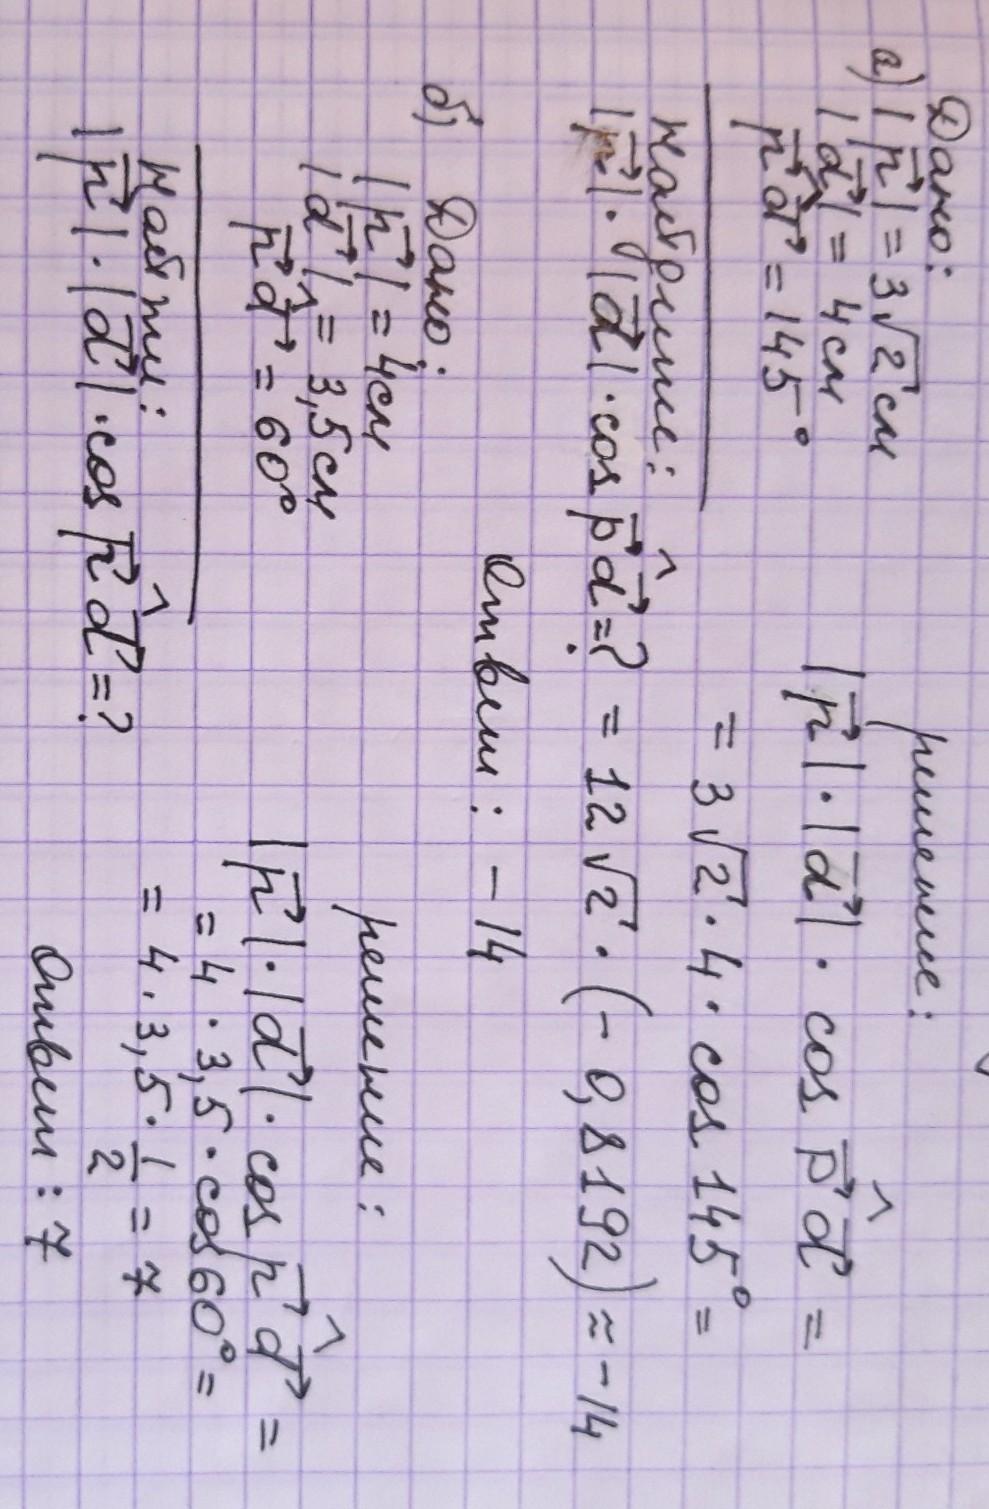 Дано:
а) |p⃗| = 3√2 см
|d⃗| = 4 см
p⃗^d⃗ = 145°
|p⃗|·|d⃗|·cos p⃗^d⃗ = ?
решение:
|p⃗|·|d⃗|·cos p⃗^d⃗ =
= 3√2·4·cos 145° =
= 12√2·(-0,8192) ≈ -14
Ответ: -14
б) Дано:
|p⃗| = 4 см
|d⃗| = 3,5 см
p⃗^d⃗ = 60°
Найти:
|p⃗|·|d⃗|·cos p⃗^d⃗ = ?
решение:
|p⃗|·|d⃗|·cos p⃗^d⃗ =
= 4·3,5·cos 60° =
= 4·3,5·1/2 = 7
Ответ: 7